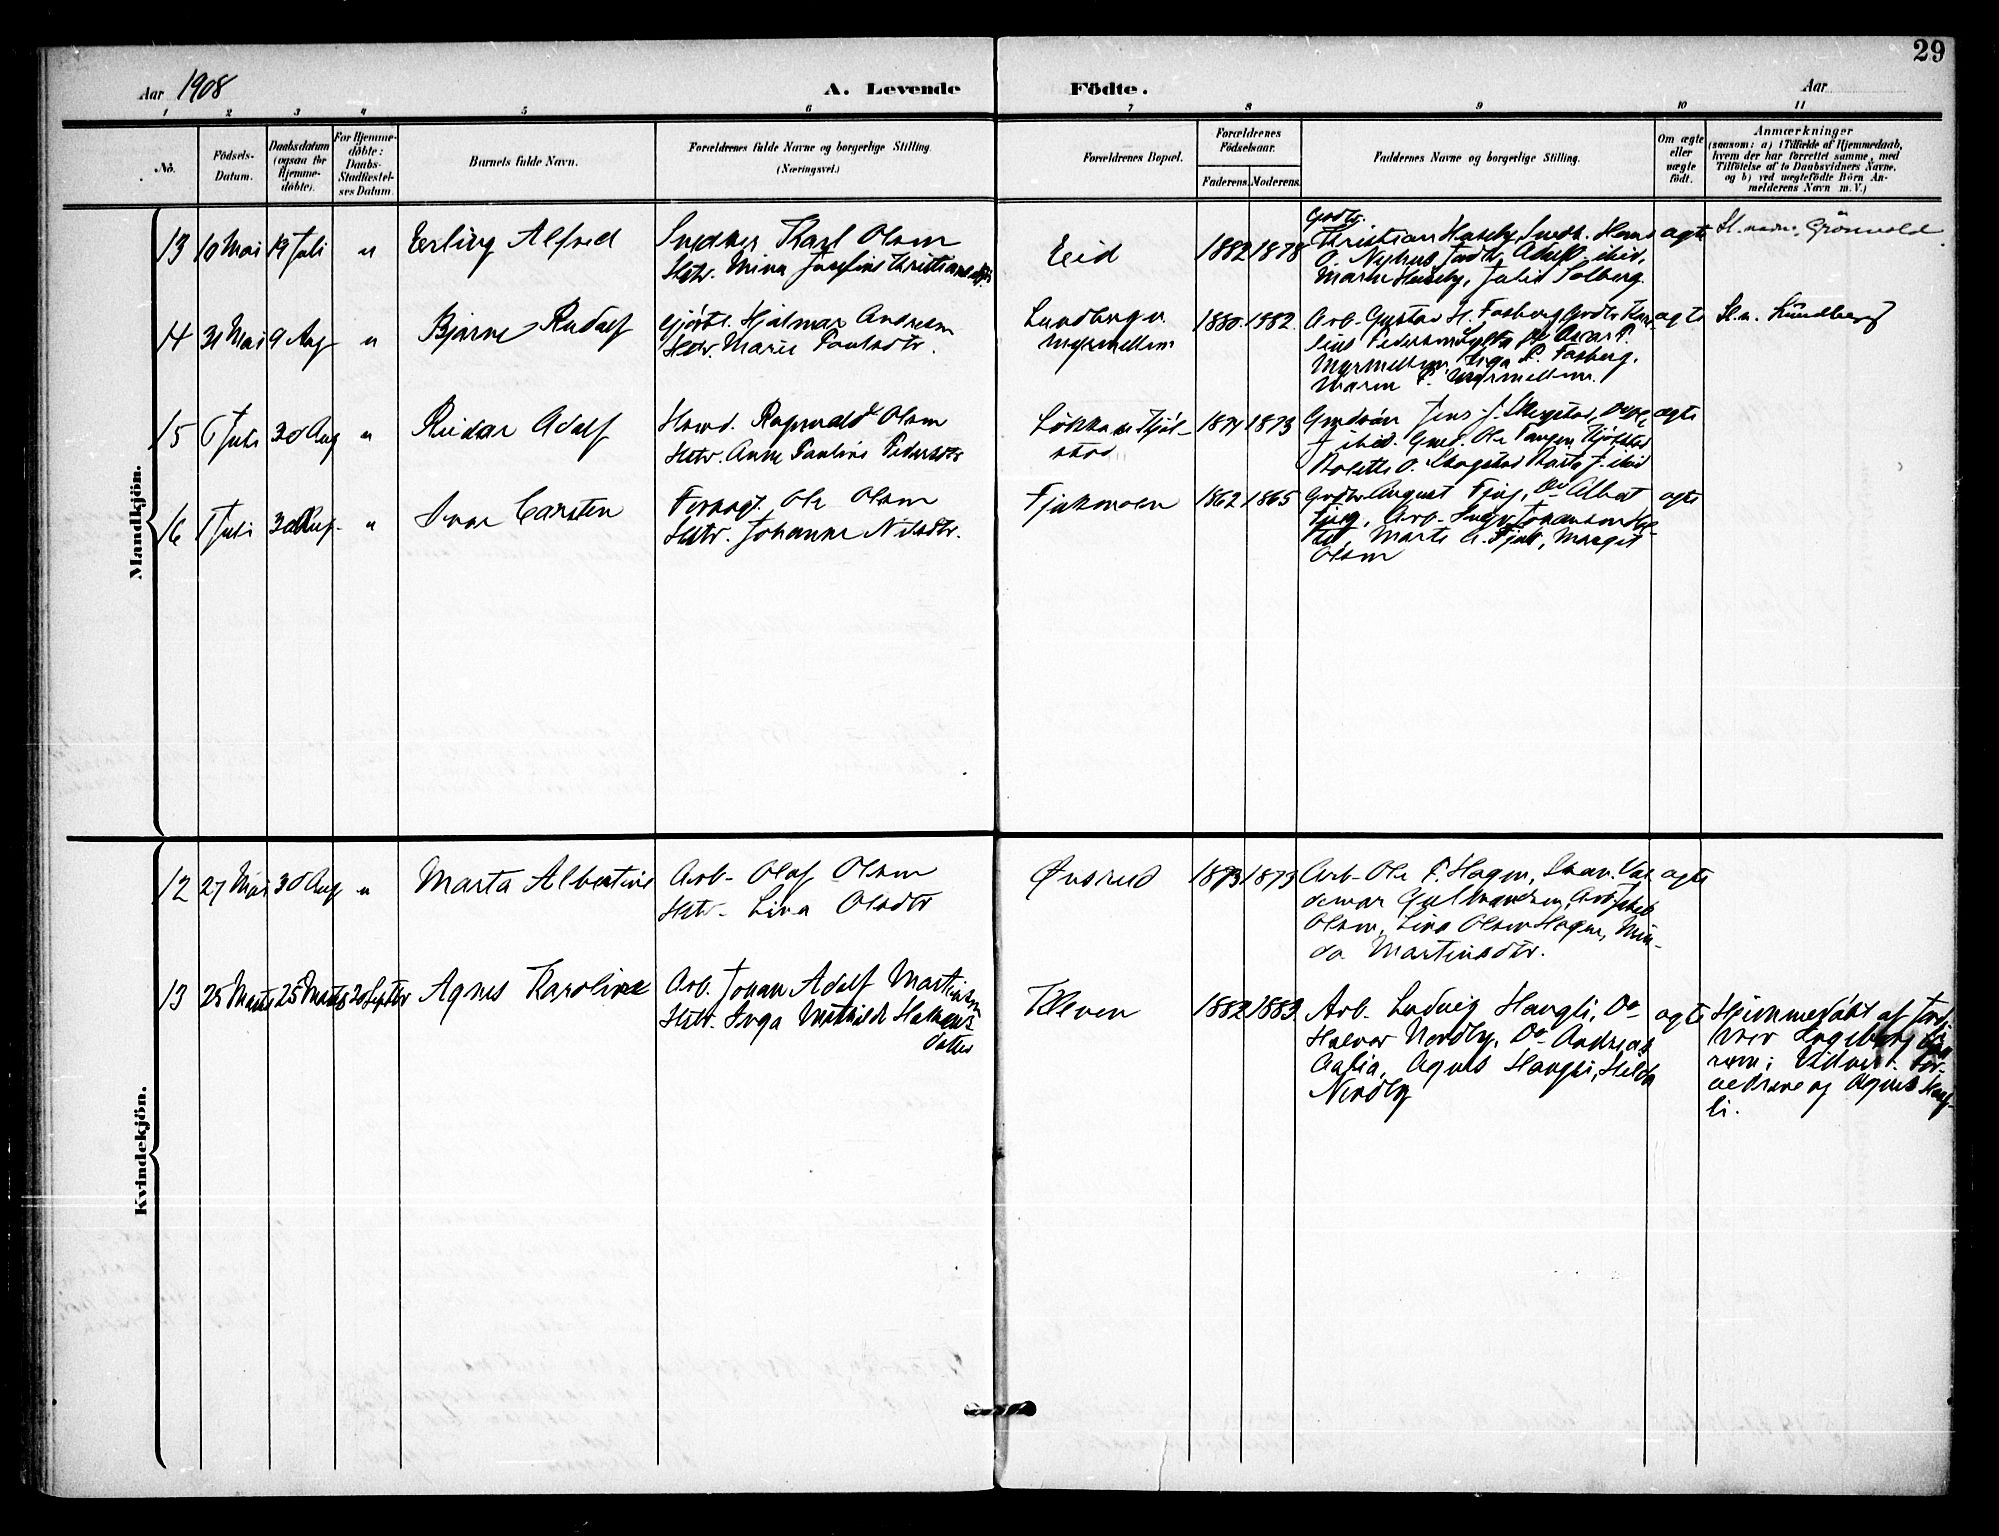 29
Aar 1908
A. Levende
Födte.
Aar
1 2 3 4 5 6 7 8 9 10 11
No.
Födsels-
Datum.
Daabsdatum
(ogsaa for
Hjemme-
döbte).
For Hjemme-
döbte:
Daabs-
Stadfæstel-
ses Datum.
Barnets fulde Navn.
Forældrenes fulde Navne og borgerlige Stilling.
(Næringsvei.)
Forældrenes Bopæl.
Forældrenes
Födselsaar.
Faderens. Moderens.
Faddernes Navne og borgerlige Stilling.
Om ægte
eller
uægte
födt.
Anmærkninger
(saasom: a) i Tilfælde af Hjemmedaab,
hvem der har forrettet samme, med
Tilföielse af to Daabsvidners Navne,
og b) ved uægtefödte Börn An-
melderens Navn m. V.)
Mandkjön.
13 10 Mai 19 Juli " Erling Alfred
Snedker Karl Olsen
Hstr. Mina Josefine Kristiansdtr.
Eid
1882 1878
Godtr.
Kristian Huseby, Snedk. Hans
O. Nyhus, Adolf ibid,
Maren Huseby, Julie Solberg.
ægte
Sl.navn, Grönvold
14 31 Mai 9 Aug " Bjarne Rudolf
Gjörtl. Hjalmar Andresen
Hstr. Marie Paulsdtr.
Lundberg u.
Myrmellem
1880. 1882.
Arb. Gustav H. Fosberg
Pedersen Oscar P.
Myrmellem, Inga P. Fosberg,
Maren P. Myrmellem.
ægte
Sl.n. Lundberg
15 6 Juli 30 Aug " Reidar Adolf
Ragnvald Olsen
Hstr. Anne Pauline Pedersdtr
Lökken u. Fjöl-
stad
1871 1873
Jens J. Skogstad,
ibid. Ole Tangen
Bolette O. Skogstad Marte J. ibid
ægte
16 1 Juli 30 Aug. " Ivar Carsten
Ole Olsen
Hstr. Johanne Nilsdtr.
Fjukmoen
1862 1865
August Fjug, Do Albert
Fjug, Arb. Johansen
Marte A. Fjuk, Margit
Olsen
ægte
Kvindekjön.
12 27 Mai 30 Aug " Marta Albertine
Arb- Olaf Olsen
Hstr- Lina Olsdtr
Önsrud
1873 1873
Arb- Ole P. Hagen, Val-
demar Gulbrandsen, Arb Jakob
Olsen, Lina Olsen Hagen, Min-
da Martinsdtr.
ægte
13 25 Marts 25 Marts 20 Septbr Agnes Karoline
Arb. Johan Adolf Martinsen
Hstr. Inga Mathilde Halvors
datter
Kleven
1882 1883.
Arb. Ludvig Haugli, Do
Halvor Nordby, Do Andreas
Aalia, Agnes Haugli, Hilda
Nordby
ægte
Hjemmedöbt af Jord-
mor Ingeborg
Vidner: For-
ældrene og Agnes Haug-
li.